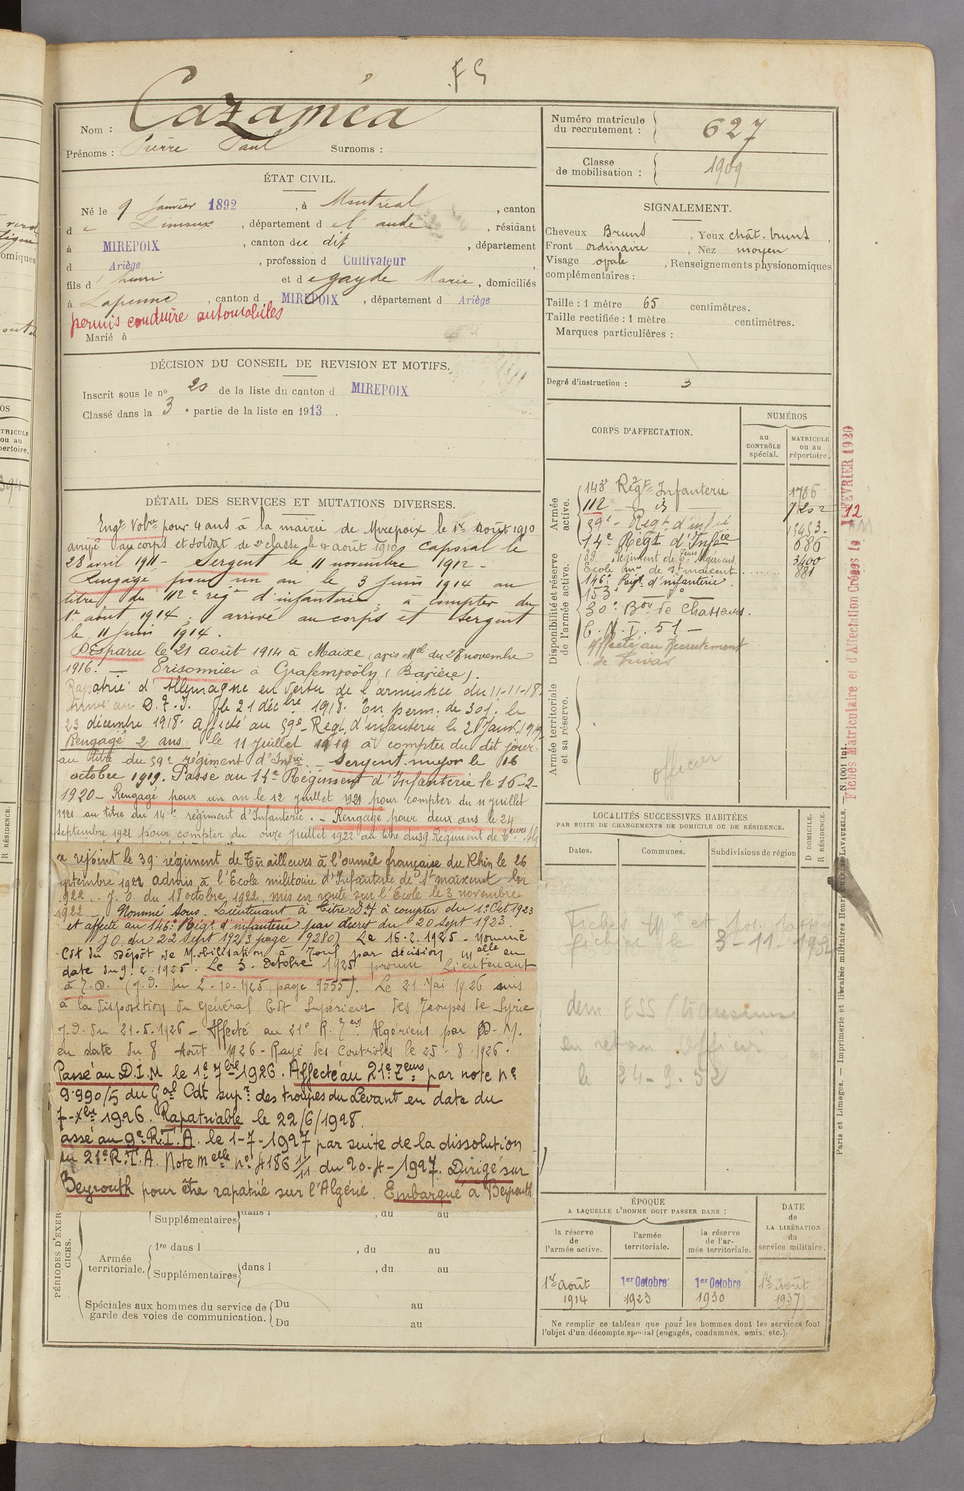 FG
Nom : Cazaméa
Prénoms : Pierre Paul Surnoms :
ÉTAT CIVIL.
Né le 9 Janvier 1892, à Montréal, canton
d e Limoux, département d e l'aude, résidant
à MIREPOIX, canton du dit, département
d Ariège, profession d Cultivateur
fils d' henri et d egayde Marie, domiciliés
à Lapenne, canton d MIREPOIX, département d Ariège
permis conduire automobiles
Marié à
DÉCISION DU CONSEIL DE REVISION ET MOTIFS.
Inscrit sous le n° 20 de la liste du canton d MIREPOIX
Classé dans la 3e partie de la liste en 1913.
DÉTAIL DES SERVICES ET MUTATIONS DIVERSES.
Engt Volre pour 4 ans à la mairie de Mirepoix le 1er Août 1910
arrivé au corps et soldat de 2e classe le 4 août 1910, caporal le
28 avril 1911 - Sergent le 11 novembre 1912 -
Rengagé pour un an le 3 Juin 1914 au
titre du 112e régt d'infanterie, à compter du
1er août 1914, arrivé au corps et sergent
le 11 Juin 1914.
Disparu le 21 août 1914 à Maixe, avis Mel du 28 novembre
1916. - Prisonnier à Grafenwöhr (Bavière).
Rapatrié d'Allemagne en vertu de l'armistice du 11-11-18.
Arrivé au D.T.I. le 21 décbre 1918. En perm. de 30j. le
23 décembre 1918. affecté au 59e Régt d'infanterie le 28 Janv. 1919
Rengagé 2 ans. le 11 juillet 1919 à compter du dit jour.
au titre du 59e régiment d'Infie - Sergent major le 16
octobre 1919. Passé au 14e Régiment d'Infanterie le 16-2-
1920 - Rengagé pour un an le 12 juillet 1921 pour compter du 11 juillet
1921 au titre du 14e régiment d'Infanterie. - Rengagé pour deux ans le 24
septembre 1921 pour compter du onze juillet 1922 au titre du 39e Régiment de Teurs
a rejoint le 39e régiment de Tirailleurs à l'armée française du Rhin le 26
septembre 1922 admis à l'Ecole militaire d'Infanterie de St maixent
1922. - J.O. du 18 octobre 1922, mis en route sur l'Ecole le 3 novembre
1922. Nommé Sous-Lieutenant à titre à compter du 1er Oct 1923
et affecté au 146e Régt d'infanterie par décret du 20 sept 1923.
J.O. du 22 Sept 1923 page 9280. Le 16.2.1925 - Nommé
Cdt du Dépôt de Mobilisation à Toul par décision Melle en
date du 9.2.1925 - Le 3 Octobre 1925 promu Lieutenant
à T.D. (J.O. du 2.10.1925, page 9555). Le 21 Mai 1926 mis
à la disposition du Général Cdt Supérieur des Troupes de Syrie
J.O. du 21.5.1926 - Affecté au 21e R. Teurs Algériens par D.M.
en date du 8 Août 1926 - Rayé des Contrôles le 25-8-1926.
Passé au D.I.M. le 1er 7bre 1926. Affecté au 21e Teurs par note no
9.990/5 du Gal Cdt supr des troupes du Levant en date du
7-Xbre 1926. Rapatriable le 22/6/1928.
assé au 9e R.T.A. le 1-7-1927 par suite de la dissolution
du 21e R.T.A. Note melle no 4186 1/11 du 20-4-1927. Dirigé sur
Beyrouth pour être rapatrié sur l'Algérie. Embarqué à Beyrouth
PÉRIODES D'EXERCICES.
Supplémentaires dans l , du au
Armée territoriale.
1re dans l , du au
Supplémentaires dans l , du au
Spéciales aux hommes du service de garde des voies de communication.
Du au
Du au
Numéro matricule du recrutement : 627
Classe de mobilisation : 1909
SIGNALEMENT.
Cheveux Bruns, Yeux chât. bruns,
Front ordinaire, Nez moyen
Visage ovale, Renseignements physionomiques
complémentaires :
Taille : 1 mètre 65 centimètres.
Taille rectifiée : 1 mètre centimètres.
Marques particulières :
Degré d'instruction : 3
CORPS D'AFFECTATION.
NUMÉROS
au CONTRÔLE spécial.
MATRICULE ou au répertoire.
Armée active.
143e Régt Infanterie 1786
112 d° 7252
Disponibilité et réserve de l'armée active.
59e Régt d'infie 15453
14e Régt d'Infie 686
39 Régiment de Teurs Algériens 3400
Ecole Mre de St maixent 881
146e Regt d'infanterie
153e d°
30e Bon de Chasseurs.
C.M.I. 51 -
Affecté au Recrutement
Armée territoriale et sa réserve.
officier
LOCALITÉS SUCCESSIVES HABITÉES
PAR SUITE DE CHANGEMENTS DE DOMICILE OU DE RÉSIDENCE.
Dates.
Communes.
Subdivisions de région
D DOMICILE.
R RÉSIDENCE.
3-11-1932
le 24-9-52
ÉPOQUE
A LAQUELLE L'HOMME DOIT PASSER DANS :
la réserve de l'armée active.
l'armée territoriale.
la réserve de l'armée territoriale.
DATE de LA LIBÉRATION du service militaire.
1er Août 1914
1er Octobre 1923
1er Octobre 1930
1er Août 1937
Ne remplir ce tableau que pour les hommes dont les services font
l'objet d'un décompte spécial (engagés, condamnés, omis, etc.)
Fiches Matriculaire et d'Affectation Créées le 12 FEVRIER 1920
N. 1001 int.
Paris et Limoges. — Imprimerie et librairie militaires Henri CHARLES-LAVAUZELLE